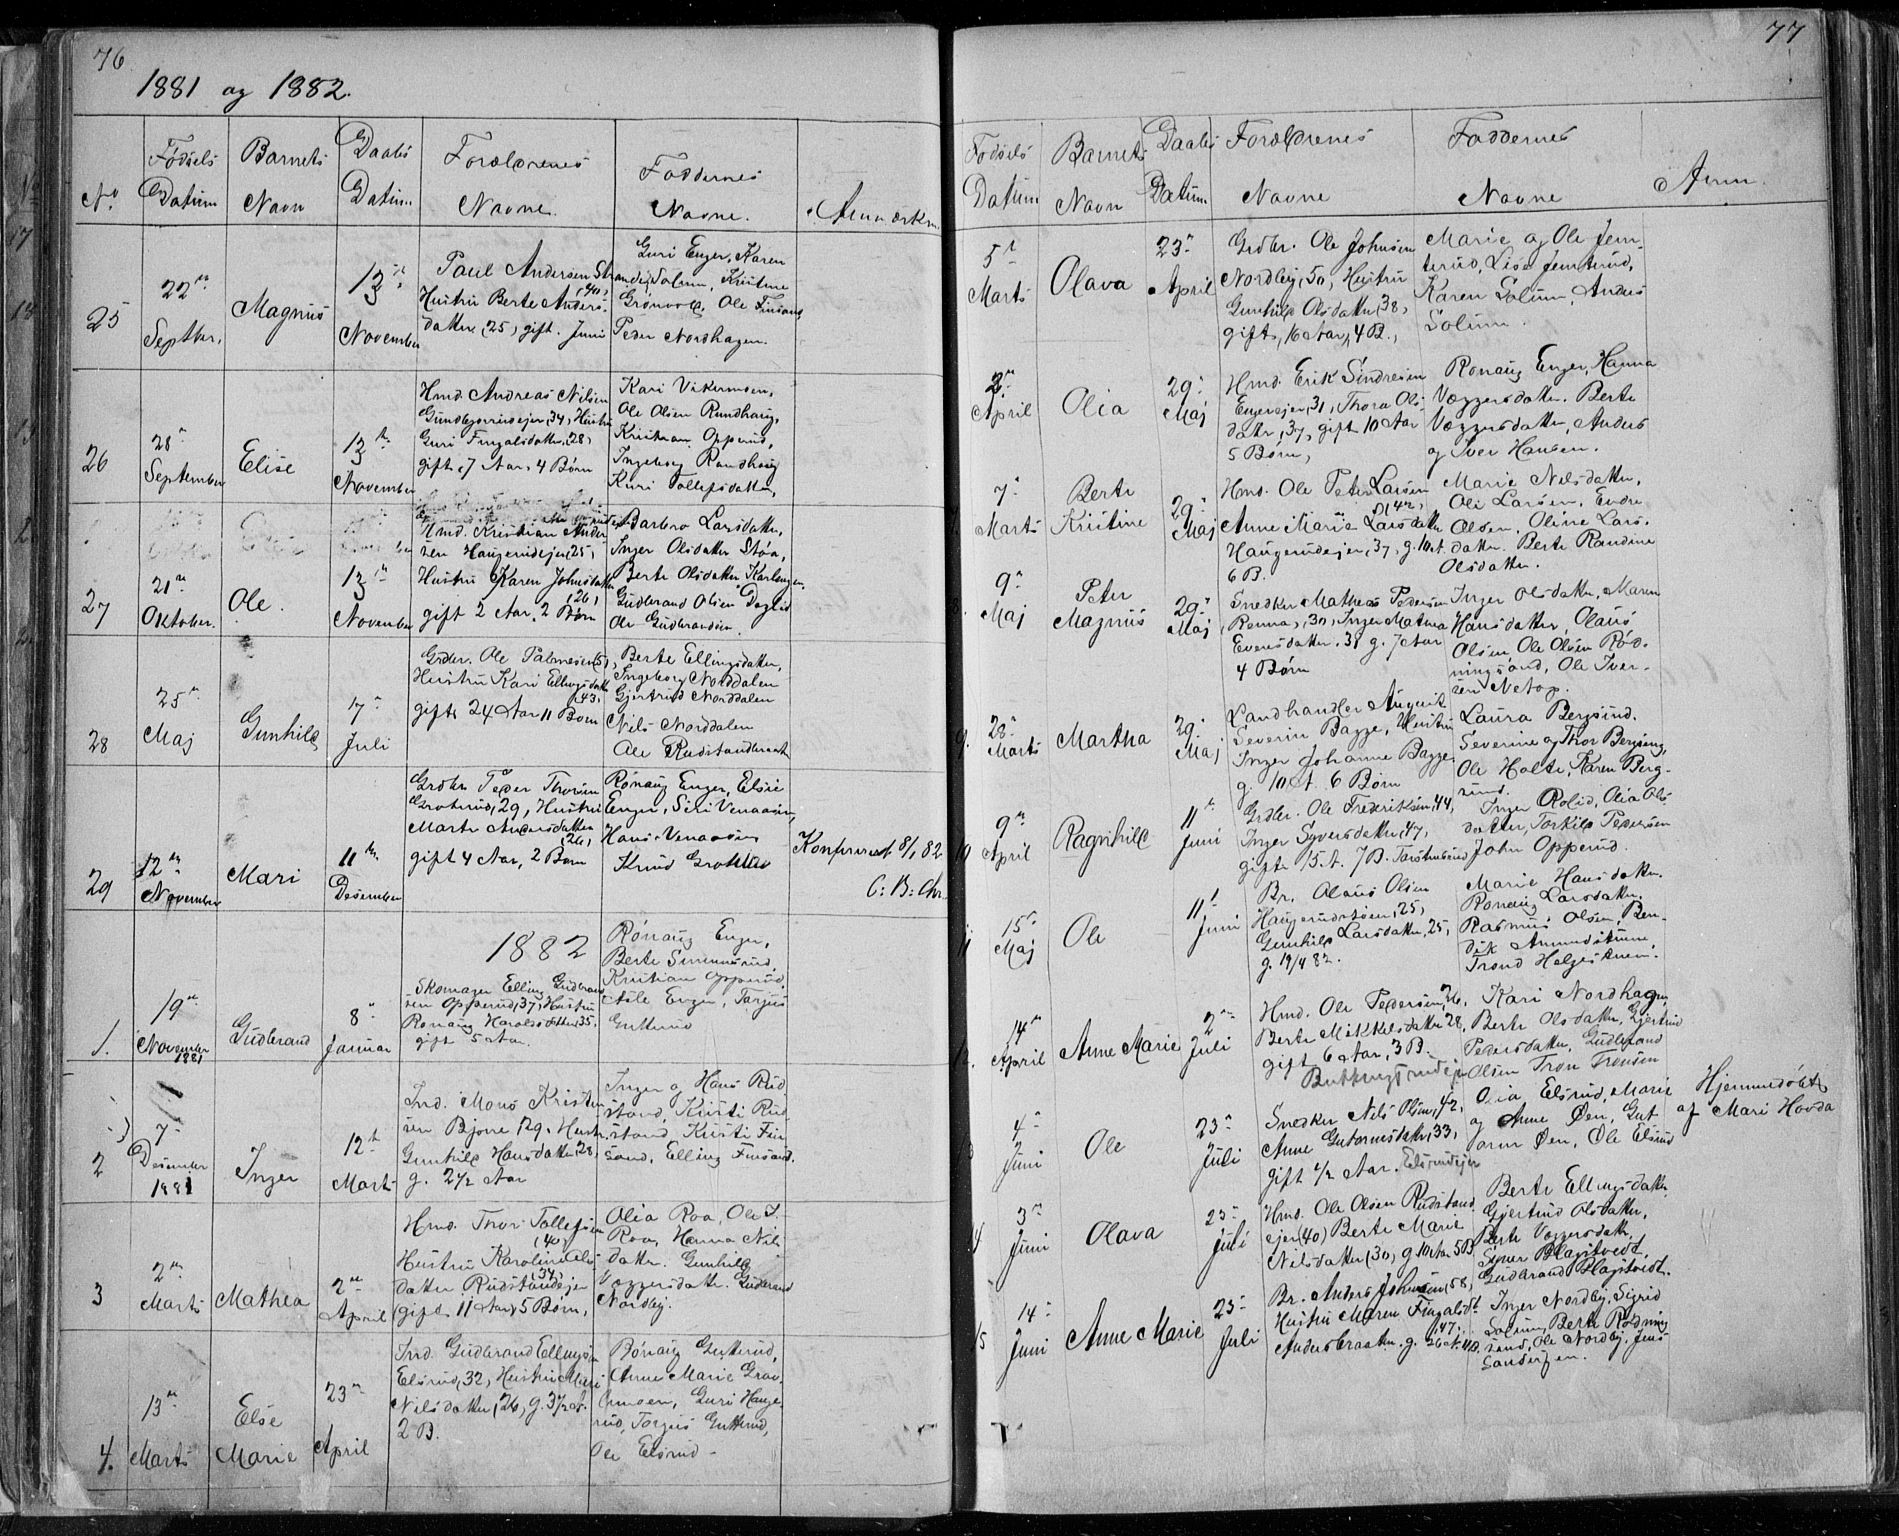 76
1881 og 1882.
No. Fødsels Datum Barnets Navn Daabs Datum Forældrenes Navne. Faddernes Navne. Anmærkn.
25
22de Septbr.
Magnus
13de November
Paul Andersen
Hustru Berte Anders-
datter (25) gift. Juni
Guri Enger, Karen
Solum, Kristine
Grønvold, Ole Finsand
Peder Nordhagen.
26
28de September
Elise
13de November
Hmd. Andreas Nilsen
34, Hustru
Guri Fingalsdatter, 28,
gift 7 Aar, 4 Børn
Kari Vikermoen,
Ole Olsen Rundhaug,
Kristian Opperud,
Ingeborg Rundhaug
Kari Tollefsdatter,
27
21de Oktober.
Ole.
13de November
Hmd. Kristian Ander
sen Haugerudejer, 25,
Hustru Karen Johnsdatter
(26)
gift 2 Aar, 2 Børn
Barbro Larsdatter,
Inger Olsdatter Støa,
Berte Olsdatter
Gudbrand Olsen
Ole Gudbrandsen.
28
25de Maj
Gunhild
7de Juli
Grdbr. Ole Palmesen
Hustru Kari Ellingsdatter
(43)
gift 24 Aar 11 Børn
Berte Ellingsdatter,
Ingeborg Norddalen
Gjertrud Norddalen
Nils Norddalen
Ole Rudstandbraaten
29
12te November
Mari
11te Desember
Grdbr Peder Thorsen
Grøterud, 29, Hustru
Marte Andersdatter
(26)
gift 4 Aar, 2 Børn
Rønaug Enger, Elsie
Enger, Siri Venaasen,
Hans Venaasen
Knud Grøterud
8/1 82
1882
1.
19de November 1881
Gudbrand
8de Januar
Skomager Elling Gudbrand
sen Opperud, 37, Hustru
Ronaug Haroldsdatter, 35,
gift 5 Aar.
Rønaug Enger,
Berte Simensrud,
Kristian Opperud,
Asle Enger, Torjus
Gutterud
2
7de Desember 1881
Inger
12te Marts
Ind. Mons Kristen
sen Bjøre 29, Hustr.
Gunhild Hansdatter, 28,
g. 2 1/2 Aar
Inger og Hans Rud
stand, Kristi Rud
stand, Kristi Fin
sand, Elling Finsand.
3
2de Marts
Mathea
2de April
Hmd. Thor Tollefsen
(40)
Hustru Karoline Ols
datter Rudstandejer
gift 11 Aar, 5 Børn,
Olia Roa, Ole T.
Roa, Hanna Nils
datter. Gunhild
Væggersdatter. Gudbrand
Nordby.
4.
13de Marts
Else Marie
23de April
Ind. Gudbrand Ellingsen
Elsrud, 32, Hustru Mari
Nilsdatter, 26, g. 3 1/2 A.
2 B.
Rønaug Gutterud,
Anne Marie Grav-
limoen, Guri Hauge-
rud, Torjus Gutterud,
Ole Elsrud
77
Fødsels Datum Barnets Navn Daabs Datum Forældrenes Navne Faddernes Navne Anm.
5te Marts
Olava
23de April
Grdbr. Ole Johnsen
Nordby, 50, Hustru
Gunhild Olsdatter, 38,
gift, 16 Aar, 4 B.,
Marie og Ole Jem-
terud, Lise Jemterud,
Karen Solum, Anders
Solum.
2de April
Olia
29de Maj
Hmd. Erik Sindresen
Engerejer, 31, Thora Ols
datter, 37, gift 10 Aar
5 Børn,
Ronaug Enger, Hanna
Væggersdatter. Berte
Væggersdatter, Anders
og Iver Hansen.
7de Marts
Berte Kristine
29de Maj
Hmd. Ole Peter Larsen
(42)
Anne Marie Larsdatter
Haugerudejer, 37, g. 10 A.
6 B.
Marie Nilsdatter,
Ole Larsen, Endre
Olsen, Oline Lars-
datter. Berte Randine
Olsdatter.
9de Maj
Peter Magnus
29de Maj
Snedker Mathias Pedersen
Renna, 30, Inger Mathea
Evensdatter, 31 g. 7 Aar
4 Børn
Inger Olsdatter, Maren
Hansdatter, Olaus
Olsen Ole Olsen Rød-
ningsand, Ole Iver-
sen Netop.
9.
28de Marts
Martha
29de Maj
Landhandler August
Severin Bagge, Hustru
Inger Johanne Bagge
g. 10 A. 6 Børn
Laura Bergsund.
Severine og Thor Bergseng,
Ole Holte, Karen Berg-
sund.
10
9de April
Ragnhild
11te Juni
Grdbr. Ole Frederiksen, 44,
Inger Syversdatter, 47,
gift 15 A. 7 B.
Inger Rolid, Olia Ols
datter, Torkild Pedersen
John Opperud.
11
15de Maj
Ole
11te Juni
Br. Olaus Olsen
Haugerudstøen, 25,
Gunhild Larsdatter, 25,
g. 19/4 82.
Marie Hansdatter.
Ronaug Larsdatter.
Rasmus Olsen, Ben-
dik
Trond
12.
14de April
Anne Marie
2de Juli
Hmd. Ole Pedersen, 26,
Berte Mikkelsdatter 28,
gift 6 Aar, 3 B.
Kari Nordhagen,
Berte Olsdatter, Gjertrud
Pedersdatter, Gudbrand
Olsen Tron Tronsen
4de Juni
Ole
23de Juli
Snedker Nils Olsen, 42,
Anne Gutormsdatter, 33,
gift 1/2 Aar. Elsrudejer
Olia Elsrud, Marie
og Anne Øen, Gut
orm Øen, Ole Elsrud
Hjemmedøbt
af Mari Hovda
14
3de Juni
Olava
23de Juli
Hmd. Ole Olsen Rudstand
ejer (40) Berte Marie
Nilsdatter (30), g. 10 Aar 5 B
Berte Ellingsdatter
Gjertrud Olsdatter,
Berte Væggersdatter,
Syver Plagstvedt,
Gudbrand Plagstvedt.
15
14de Juni
Anne Marie
23de Juli
Br. Anders Johnsen, 58,
Hustru Maren Fingalsdt.
47.
Andersbraaten. g. 26 A.
Inger Nordby, Sigrid
Solum, Berte Rødning
sand, Ole Nordby, Jens
Sandersen.